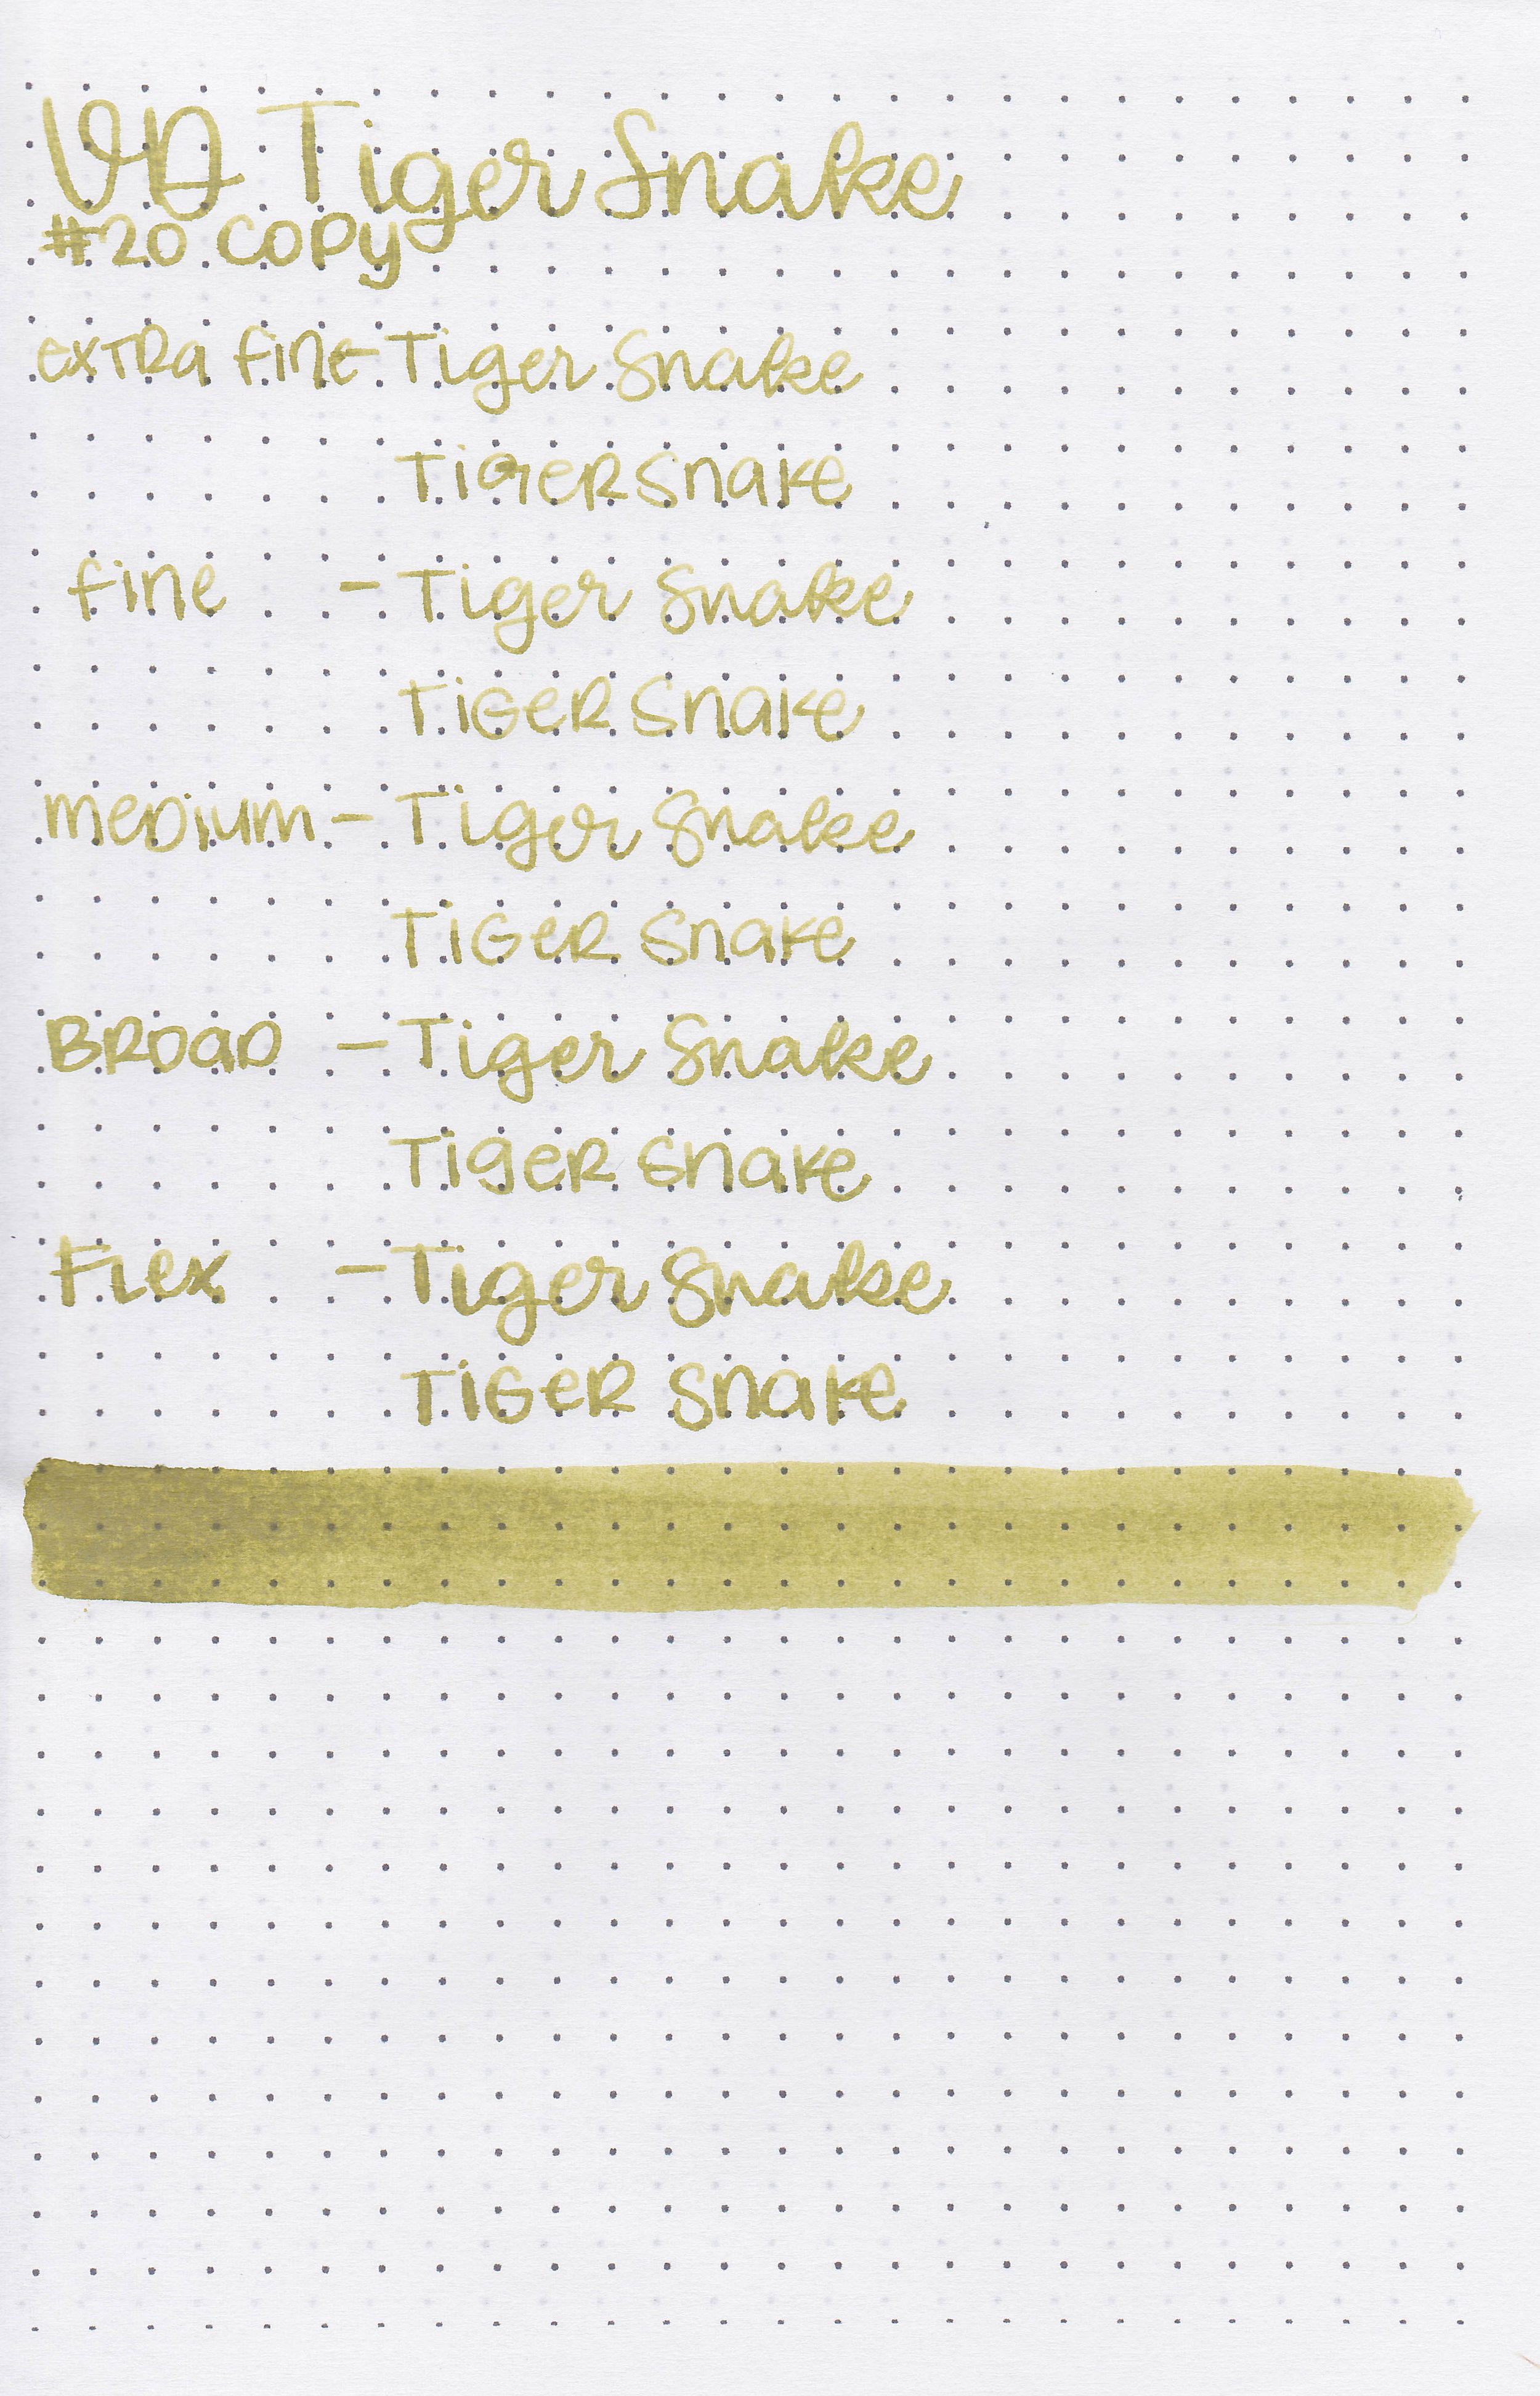 VD Tiger Snake
#20 COPY
extRa fine - Tiger Snake
TiGeR Snake
fine - Tiger Snake
TiGeR Snake
meDium - Tiger Snake
TiGeR Snake
BRoaD - Tiger Snake
TigeR Snake
FLex - Tiger Snake
TiGeR Snake